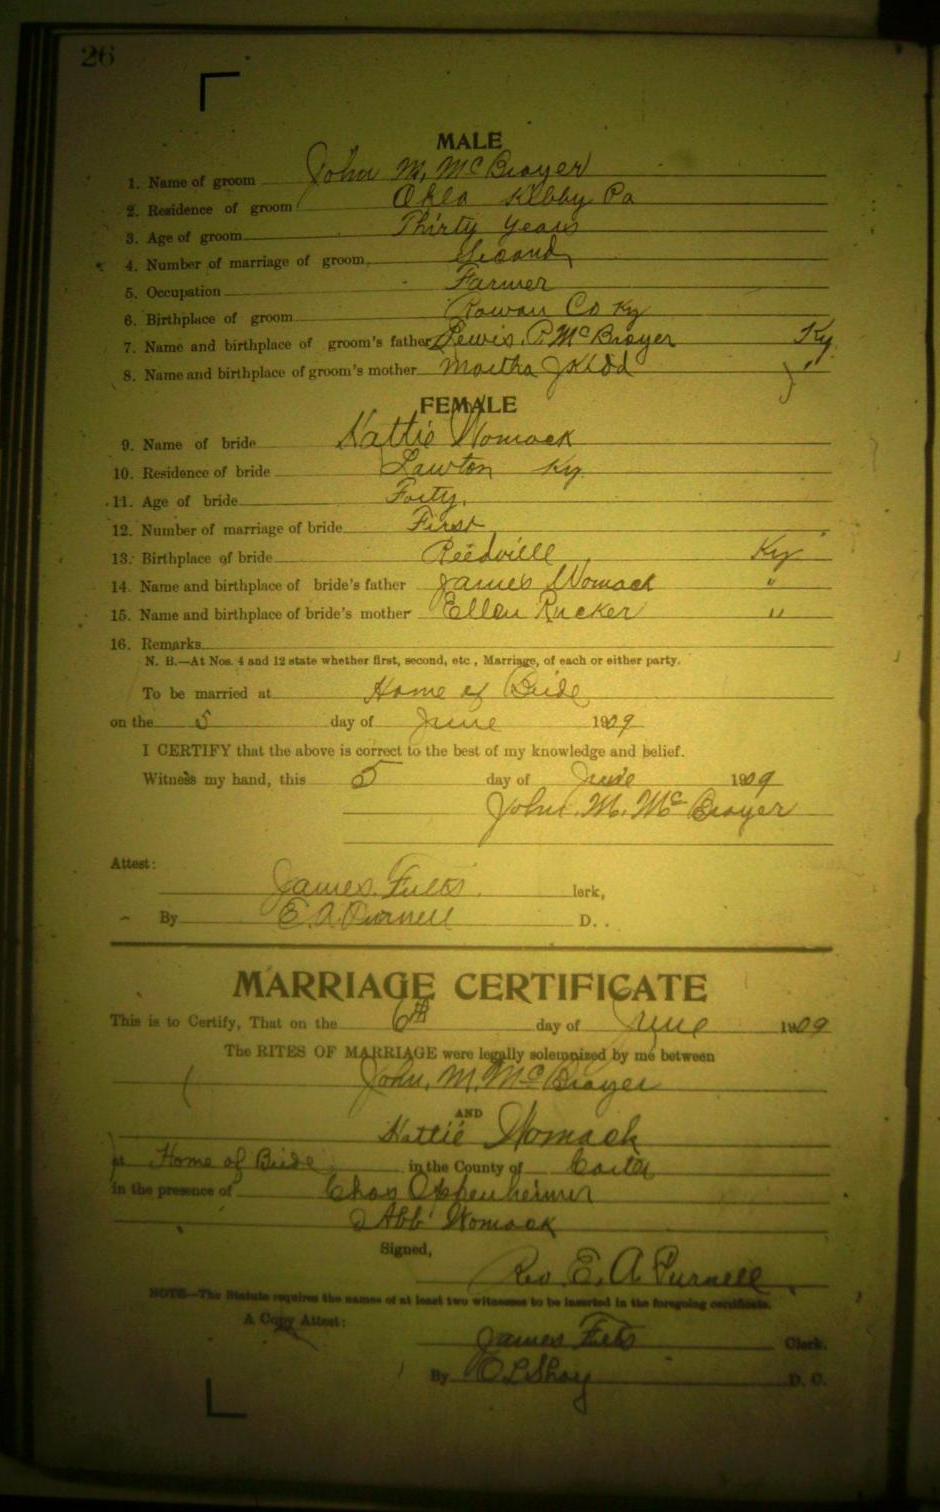 26
MALE
1. Name of groom John M. McBrayer
2. Residence of groom Okla
3. Age of groom Thirty Years
4. Number of marriage of groom Second
5. Occupation Farmer
6. Birthplace of groom Rowan Co Ky
7. Name and birthplace of groom's father Lewis P. McBrayer Ky.
8. Name and birthplace of groom's mother Martha J Kidd "
FEMALE
9. Name of bride Hattie Womack
10. Residence of bride Lawton Ky
11. Age of bride Forty.
12. Number of marriage of bride First
13. Birthplace of bride Reedville Ky
14. Name and birthplace of bride's father James Womack "
15. Name and birthplace of bride's mother Ellen Rucker "
16. Remarks
N. B.—At Nos. 4 and 12 state whether first, second, etc , Marriage, of each or either party.
To be married at Home of Bride
on the 5 day of June 1909
I CERTIFY that the above is correct to the best of my knowledge and belief.
Witness my hand, this 5 day of June 1909
John. M. McBrayer
Attest:
James. Fults. lerk,
By E. A. Purnell D. .
MARRIAGE CERTIFICATE
This is to Certify, That on the 6th day of June 1909
The RITES OF MARRIAGE were legally solemnized by me between
John. M. McBrayer
AND
Hattie Womack
at Home of Bride in the County of Carter
in the presence of Chas Oppenheimer
Abb Womack
Signed,
Rev. E. A. Purnell
NOTE—The Statute requires the names of at least two witnesses to be inserted in the foregoing certificate.
A Copy Attest:
James Fults Clerk.
By D. C.